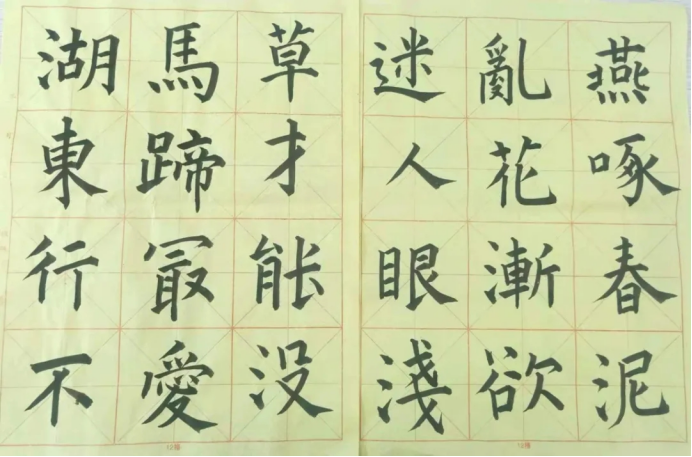 燕啄春泥
亂花漸欲
迷人眼淺
草才能没
馬蹄冣愛
湖東行不